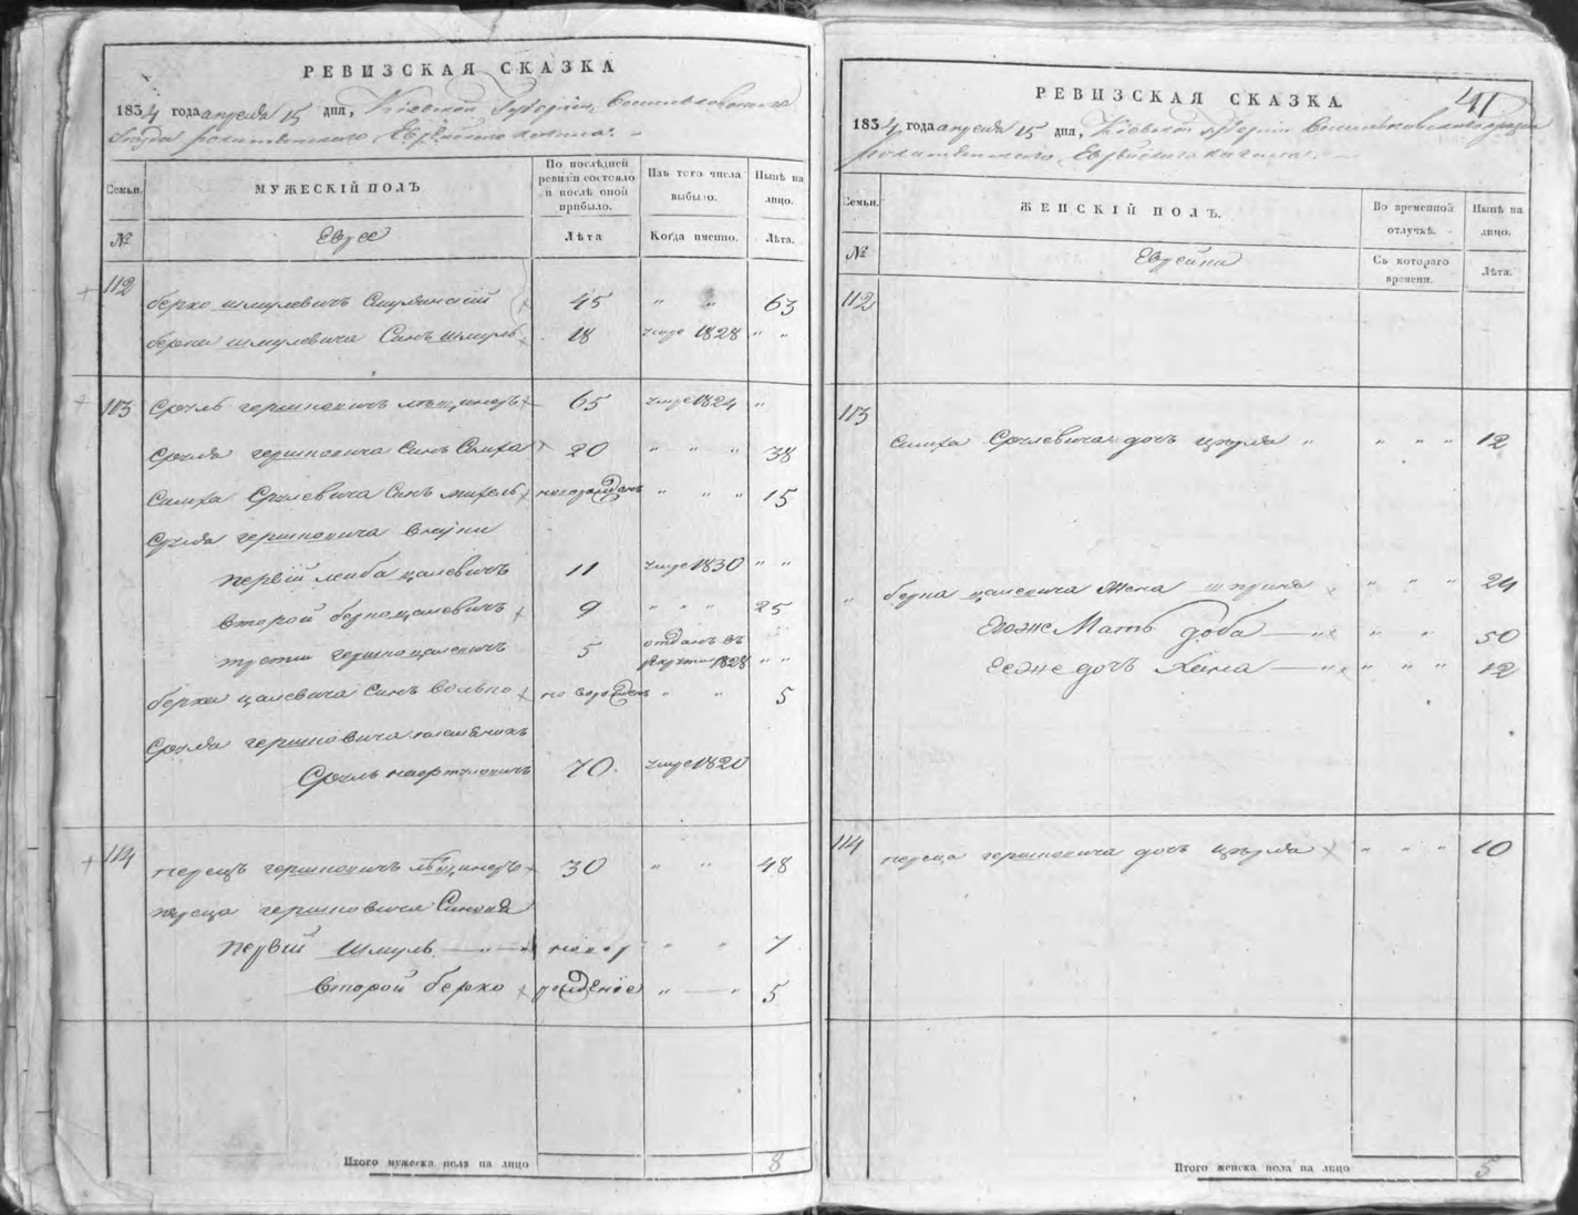 РЕВИЗСКАЯ СКАЗКА
1834 года апреля 15 дня, Кіевской Губерніи,
Еврейского кагала.
Семьи.
МУЖЕСКІЙ ПОЛЪ
По послѣдней ревизіи состояло и послѣ оной прибыло.
Изъ того числа выбыло.
Нынѣ на лицо.
№
Еврее
Лѣта
Когда именно.
Лѣта.
112
берко шмулевичъ 45 " " 63
берка шмулевича Синъ шмуль 18 умре 1828 " "
113
Сруль гершковичъ 65 умре 1824 "
Сруля гершковича Синъ Симха 20 " " " 38
Симха Срулевича Синъ " " " 15
Сруля гершковича внуки
первій лейба цалевичъ 11 умре 1830 " "
второй берко цалевичъ 9 " " " 25
третий гершко цалевичъ 5 отданъ въ рекруты 1828 " "
берка цалевича Синъ волько " " 5
Сруля гершковича племѣникъ
Сруль 70 умре 1820
114
перецъ гершковичъ 30 " " 48
переца гершковича Синовя
первій Шмуль " " 7
второй берко рожденіе " " 5
Итого мужеска пола на лицо 8
41
РЕВИЗСКАЯ СКАЗКА.
1834 года апреля 15 дня, Кіевской Губерніи
Еврейского кагала.
Семьи.
ЖЕНСКІЙ ПОЛЪ.
Во временной отлучкѣ.
Нынѣ на лицо.
№
Еврейки
Съ котораго времени.
Лѣта.
112
113
Симха Срулевича дочь цирля " " " " 12
" берка цалевича жена " " " 24
Егоже Мать доба " " 50
Еегоже дочъ Хана " " " 12
114
переца гершковича дочъ цирля " " " 10
Итого женска пола на лицо 5